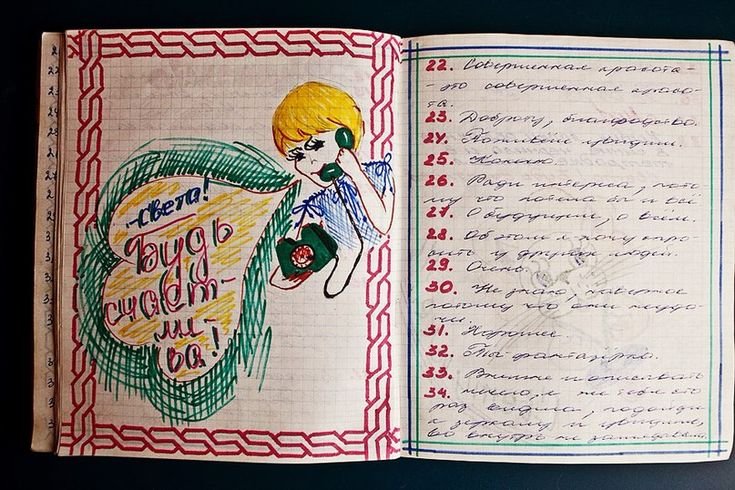 Света!
Будь
счаст-
ли-
ва!
22. Совершенная красота -
- это совершенная красо-
та.
23. Доброту, благородство.
24. Поживём увидим.
25. Конечно.
26. Ради интереса, пото-
му что
27. О будущем, о всём.
28. Об этом я хочу спро-
сить у других людей.
29. Осень
30. Не знаю, наверное
потому что они
31. Хорошее.
32. Ты фантазёрка.
33. Внешне описывать
34. нечего, я же тебя
раз видела, подойди
к зеркалу и увидишь,
во внутрь не заглядывала.